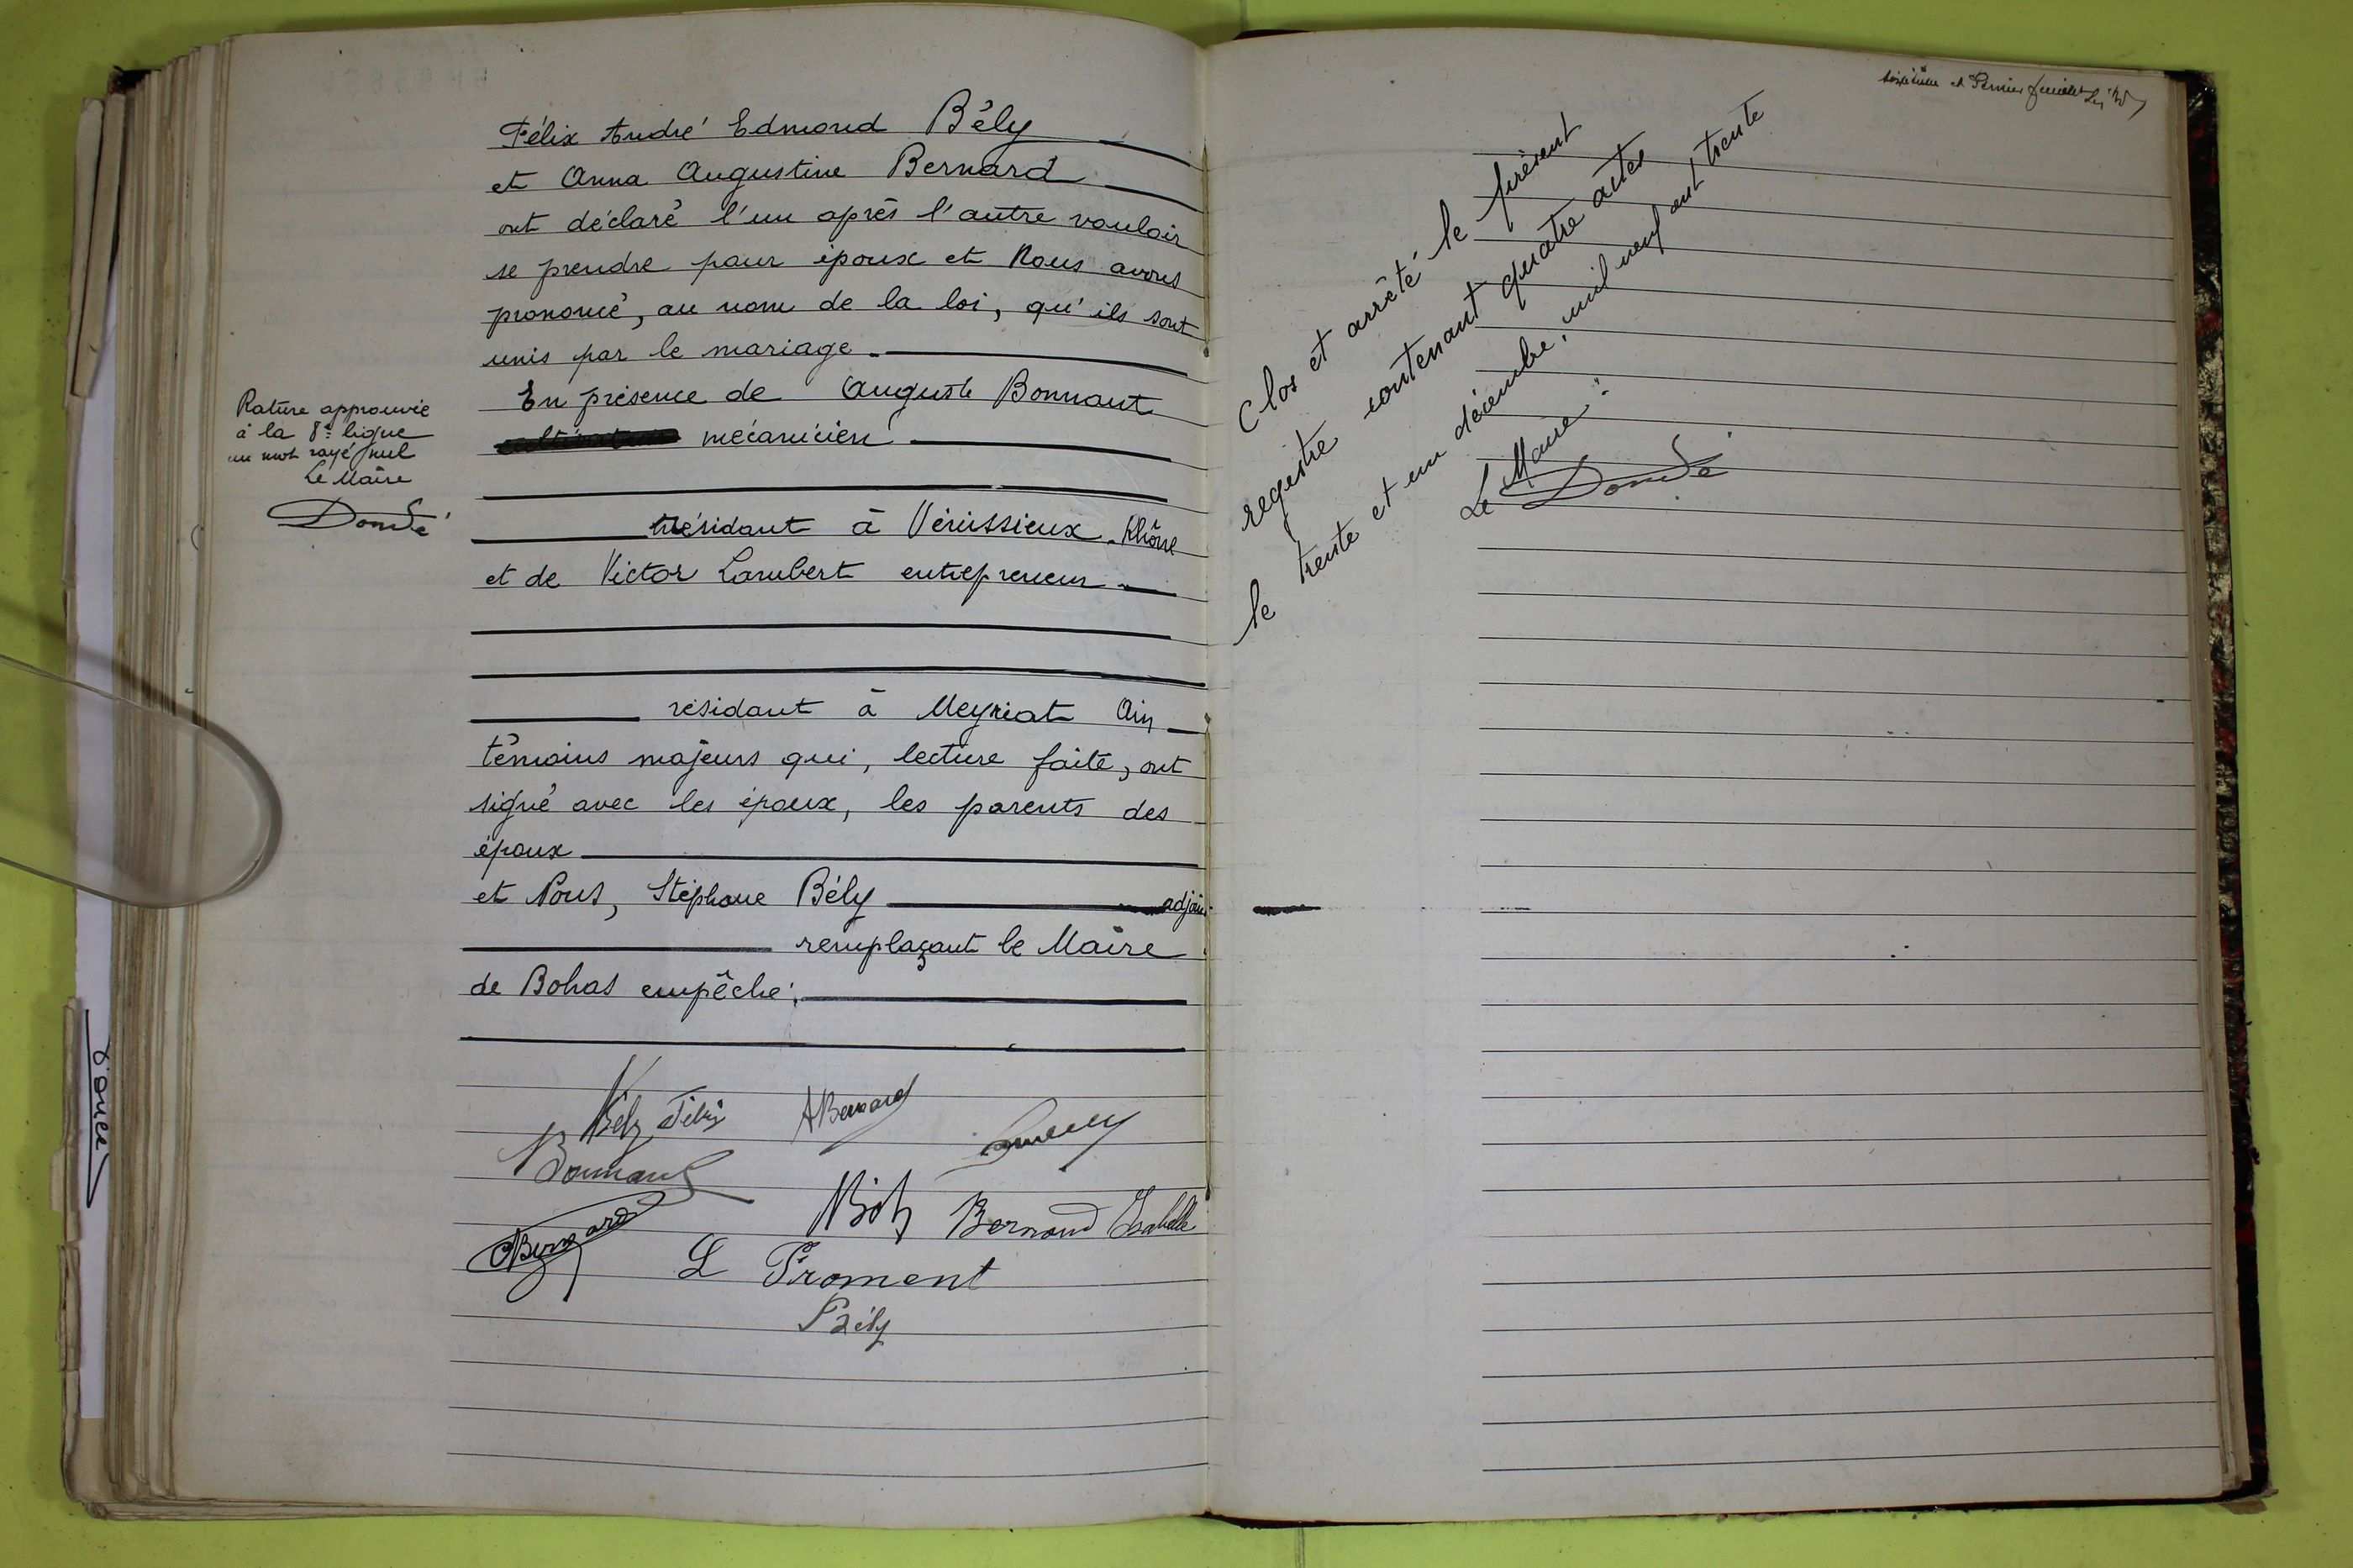 Félix André Edmond Bély
et Anna Augustine Bernard
ont déclaré l'un après l'autre vouloir
se prendre pour époux et Nous avons
prononcé, au nom de la loi, qu'ils sont
unis par le mariage.
En présence de Auguste Bonnant
mécanicien
résidant à Vénissieux. Rhône
et de Victor Lambert entrepreneur
résidant à Meyriat Ain
témoins majeurs qui, lecture faite, ont
signé avec les époux, les parents des
époux
et Nous, Stéphane Bély adjoint
remplaçant le Maire
de Bohas empêché.
Rature approuvée
à la 8e ligne
un mot rayé nul
Le Maire
Bély Félix ABernard
Bonnant
Bély Bernard Isabelle
Bernard
L Froment
Bély
feuillet
Clos et arrêté le présent
registre contenant quatre actes
le trente et un décembre, mil neuf cent trente
Le Maire: